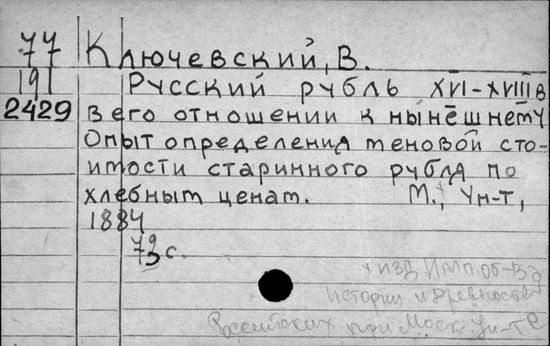 77 Ключевский, В.
191 Русский рубль XVI-XVIII в
2429 в его отношении к нынешнему
Опыт определения меновой сто-
имости старинного рубля по
хлебным ценам. М., Ун-т,
1884
с.
изд Имп. об-ва
Истории и древностей
Российских при Моск. Ун-те